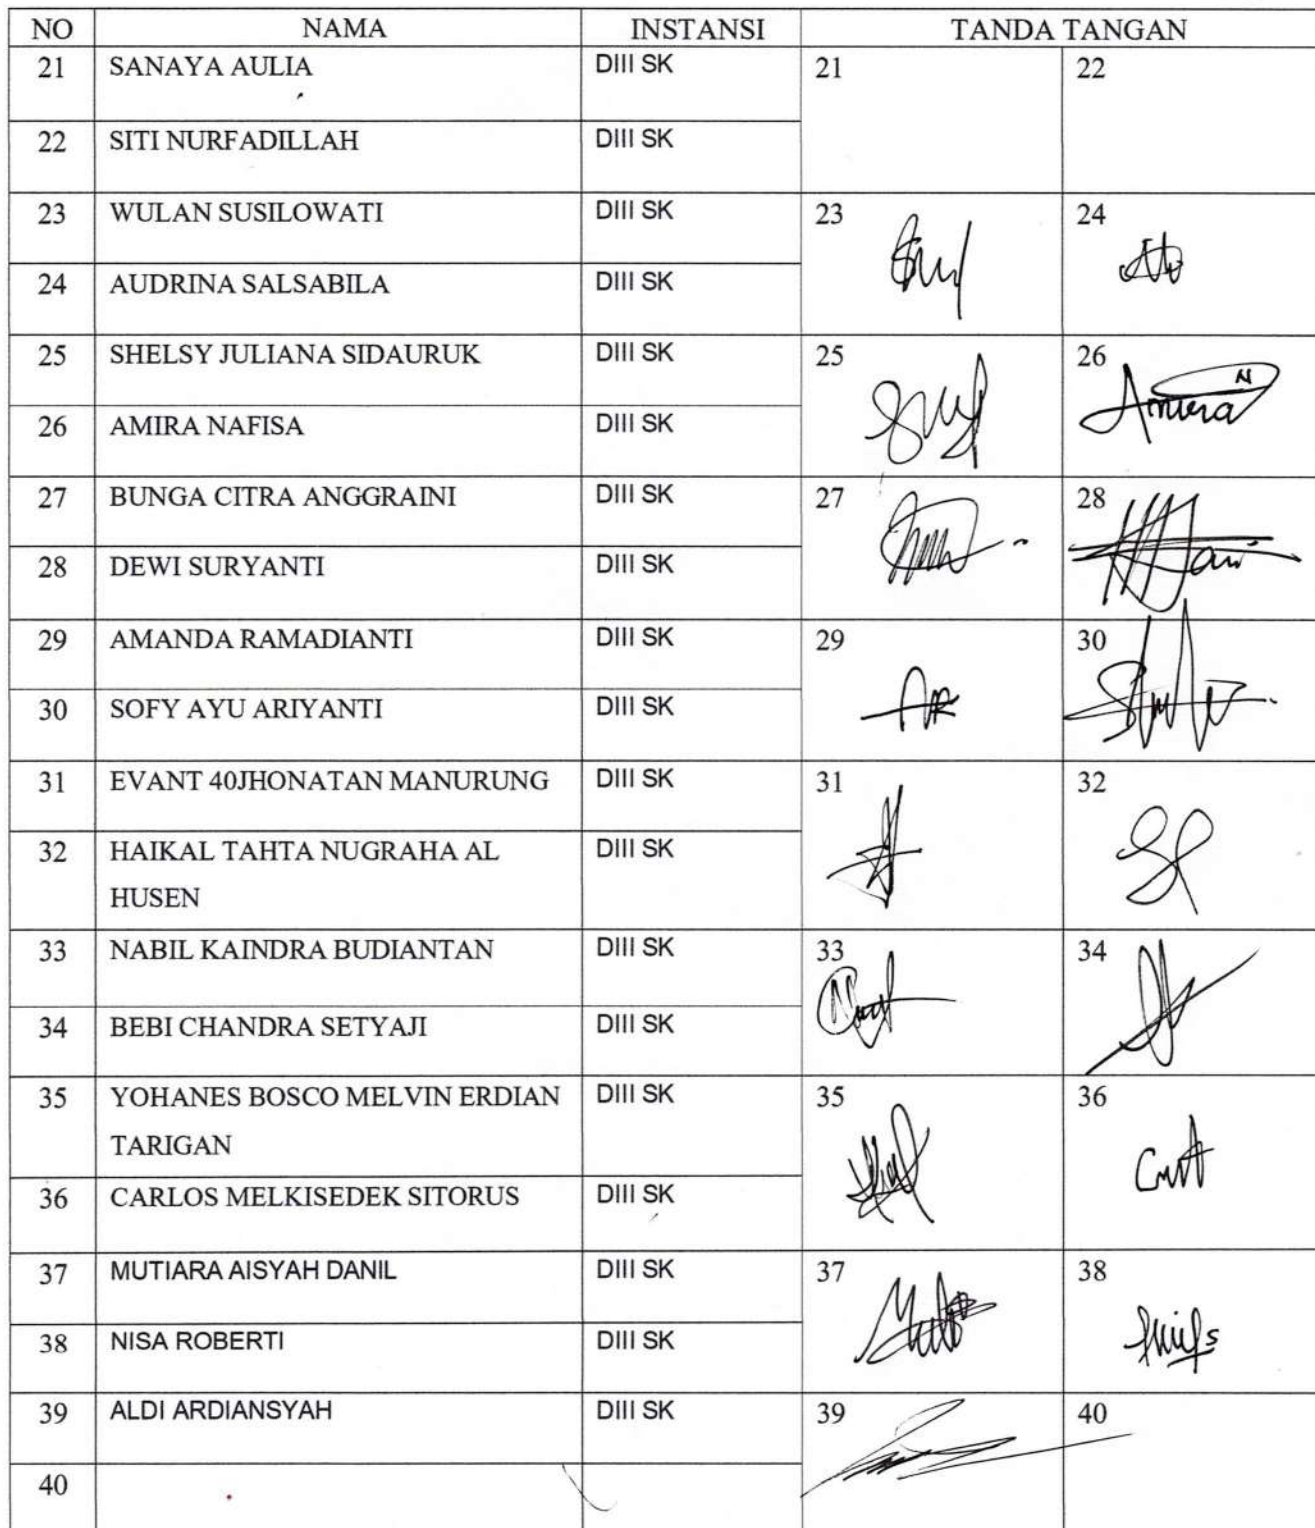 NO NAMA INSTANSI TANDA TANGAN
21 SANAYA AULIA DIII SK 21 22
22 SITI NURFADILLAH DIII SK
23 WULAN SUSILOWATI DIII SK 23 24
24 AUDRINA SALSABILA DIII SK
25 SHELSY JULIANA SIDAURUK DIII SK 25 26
Amira N
26 AMIRA NAFISA DIII SK
27 BUNGA CITRA ANGGRAINI DIII SK 27 28
28 DEWI SURYANTI DIII SK
29 AMANDA RAMADIANTI DIII SK 29 30
30 SOFY AYU ARIYANTI DIII SK
31 EVANT 40JHONATAN MANURUNG DIII SK 31 32
32 HAIKAL TAHTA NUGRAHA AL DIII SK
HUSEN
33 NABIL KAINDRA BUDIANTAN DIII SK 33 34
34 BEBI CHANDRA SETYAJI DIII SK
35 YOHANES BOSCO MELVIN ERDIAN DIII SK 35 36
TARIGAN
36 CARLOS MELKISEDEK SITORUS DIII SK
37 MUTIARA AISYAH DANIL DIII SK 37 38
38 NISA ROBERTI DIII SK
39 ALDI ARDIANSYAH DIII SK 39 40
40